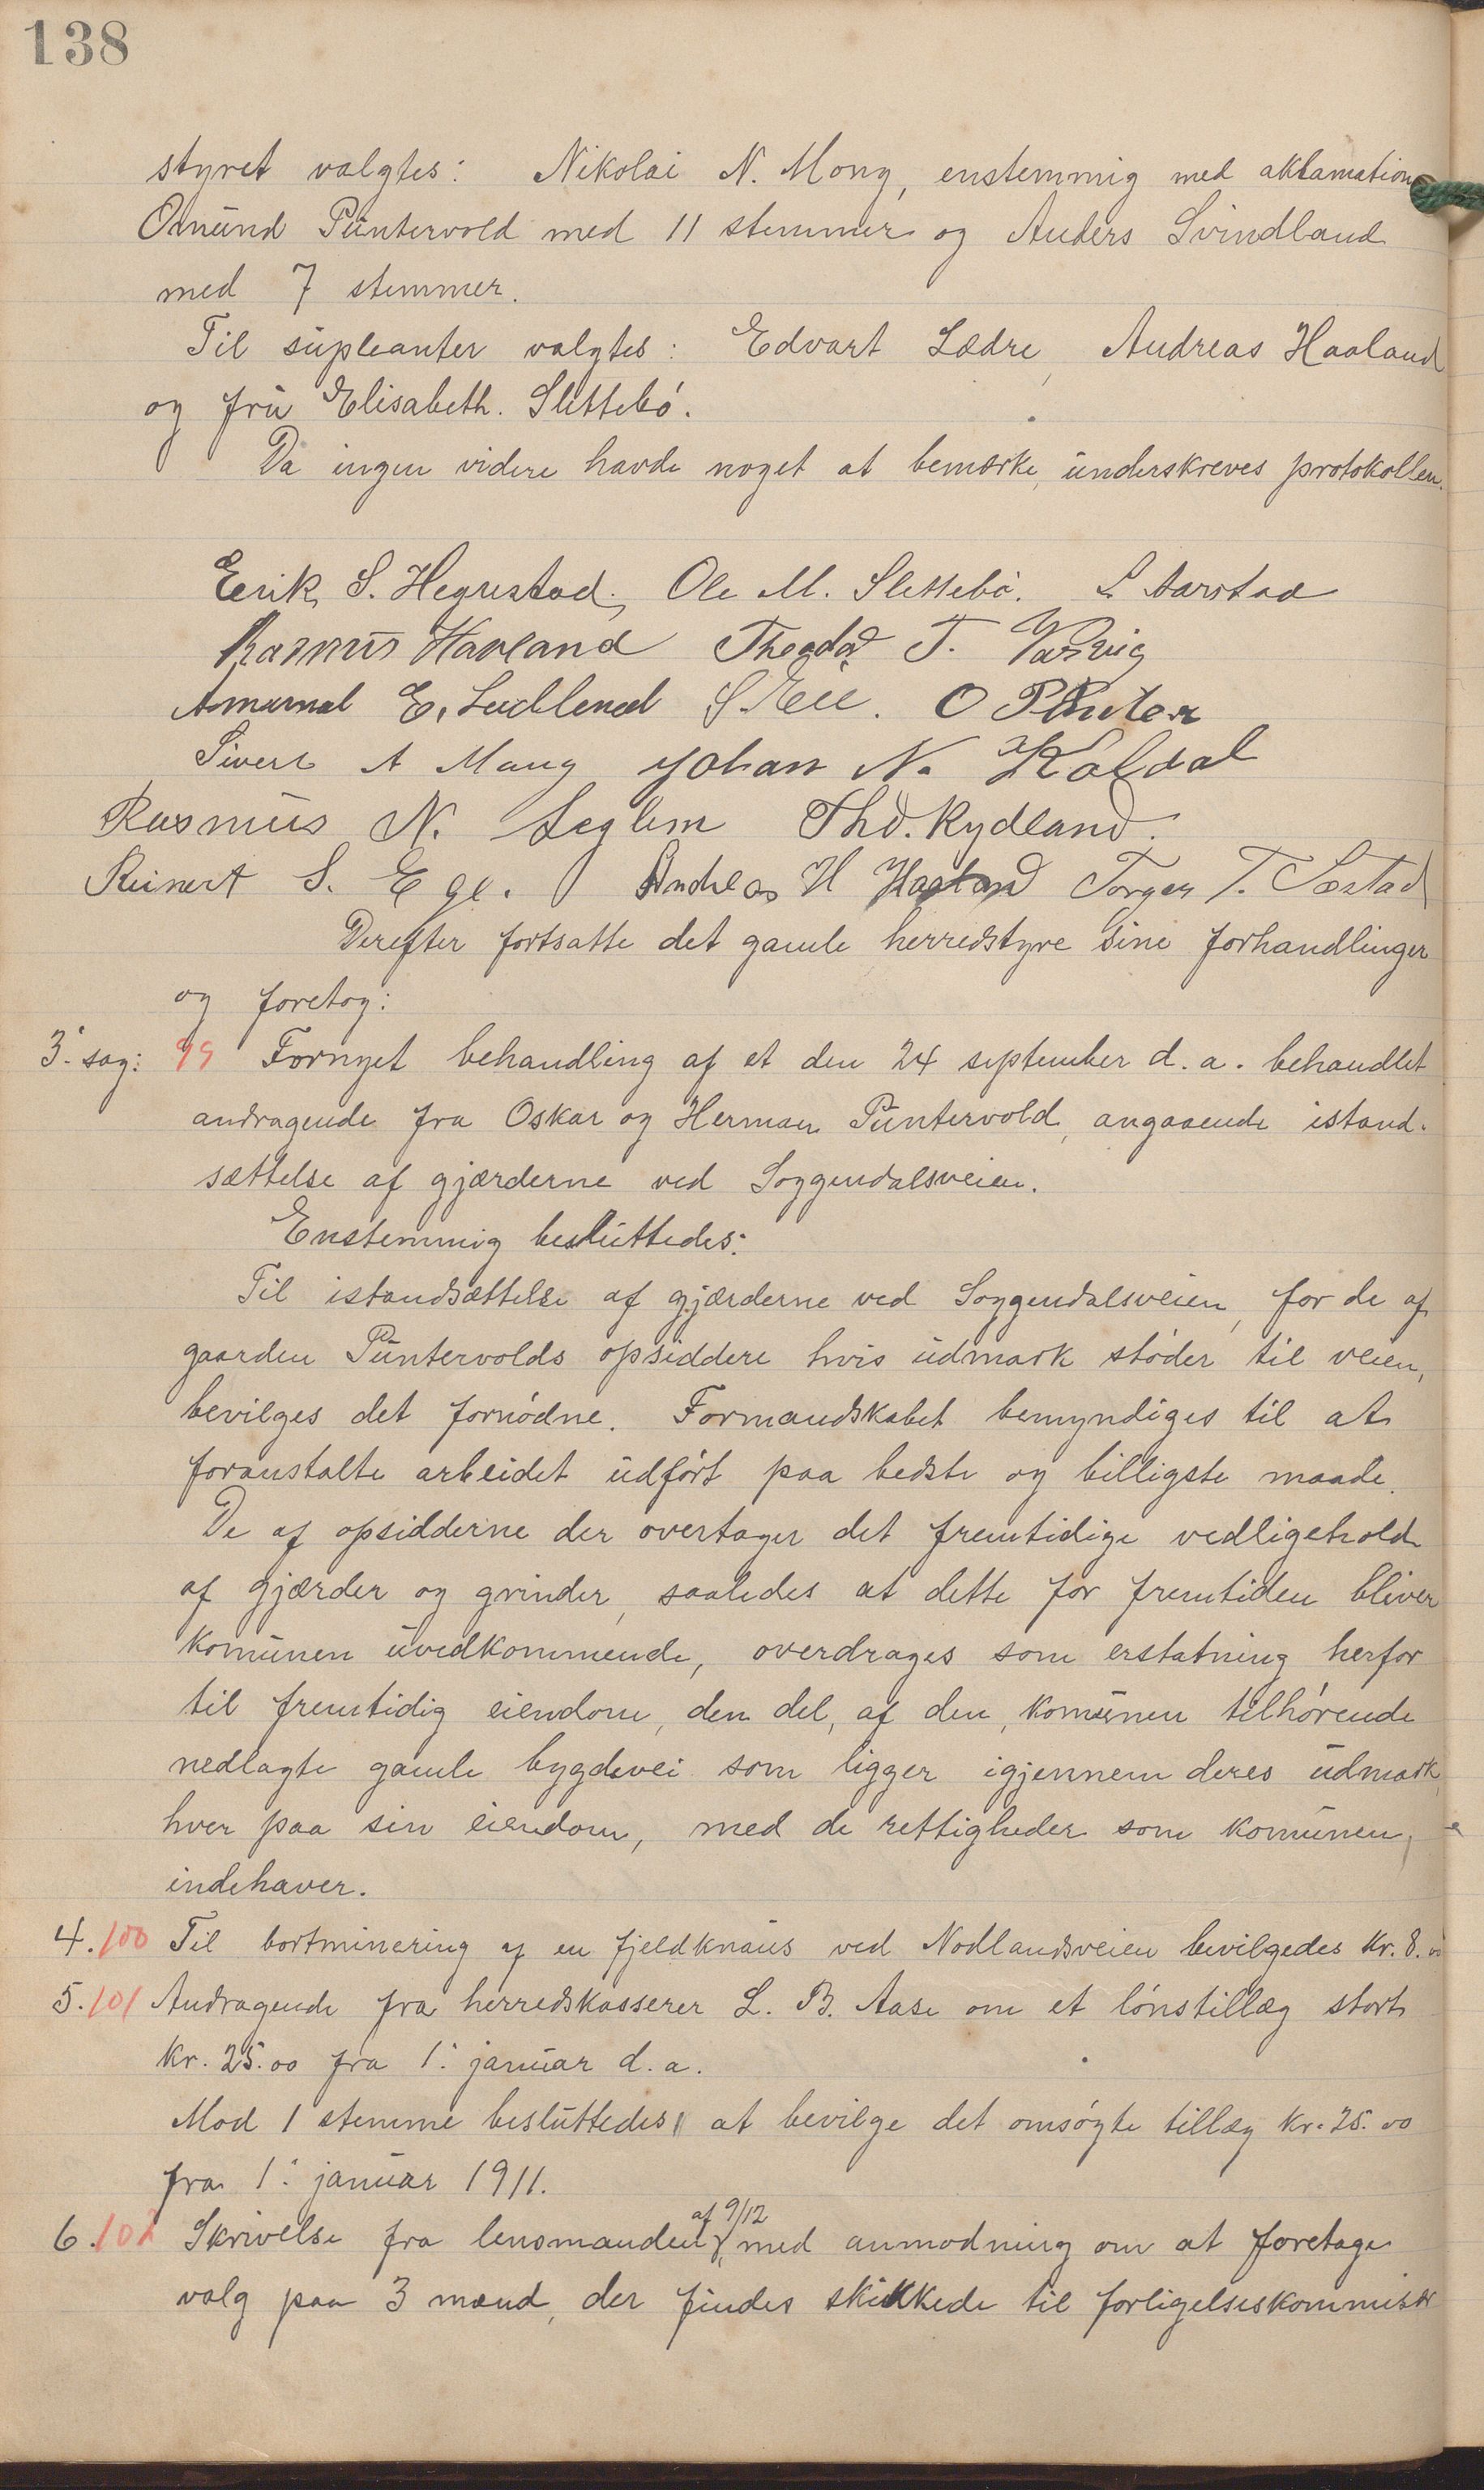 138
styret valgtes: Nikolai N. Mong, enstemmig med aklamation
Omund Puntervold med 11 stemmer og Anders Svindland
med 7 stemmer.
Til supleanter valgtes: Edvart Lædre, Andreas Haaland
og fru Elisabeth. Slettebö.
Da ingen videre havde noget at bemærke, underskreves protokollen.
Eerik S. Hegrestad, Ole M. Slettebö. L Aarstad
Rasmus Havland Theodor T. Varvig
Amund E. S. Eie. O Punter
Sivert A Mong Johan N. Koldal
Rasmus N. Seglem Thd. Rydland.
Reinert S. Ege. Andreas H Haaland Torger T. Sæstad
Derefter fortsatte det gamle herredstyre sine forhandlinger
og foretog:
3' sag: 99 Fornyet behandling af et den 24 september d. a. behandlet
andragende fra Oskar og Herman Puntervold, angaaende istand-
sættelse af gjærderne ved Soggendalsveien.
Enstemmig besluttedes:
Til istandsættelse af gjærderne ved Soggendalsveien, for de af
gaarden Puntervolds opsiddere hvis udmark stöder til veien,
bevilges det fornödne. Formandskabet bemyndiges til at
foranstalte arbeidet udfört paa bedste og billigste maade.
De af opsidderne der overtager det fremtidige vedligehold
af gjærder og grinder, saaledes at dette for fremtiden bliver
komunen uvedkommende, overdrages som erstatning herfor
til fremtidig eiendom, den del, af den, komunen tilhörende
nedlagte gamle bygdevei som ligger igjennem deres udmark,
hver paa sin eiendom, med de rettigheder som komunen,
indehaver.
4. 100 Til bortminering af en fjeldknaus ved Nodlandsveien bevilgedes kr. 8.00
5. 101 Andragende fra herredskasserer L. B. Aase om et lönstillæg stort
kr. 25.00 fra 1. januar d. a.
Mod 1 stemme besluttedes at bevilge det omsögte tillæg kr. 25.00
fra 1. januar 1911.
6. 102 Skrivelse fra lensmanden af 9/12, med anmodning om at foretage
valg paa 3 mænd, der findes skikkede til forligelseskommisæ